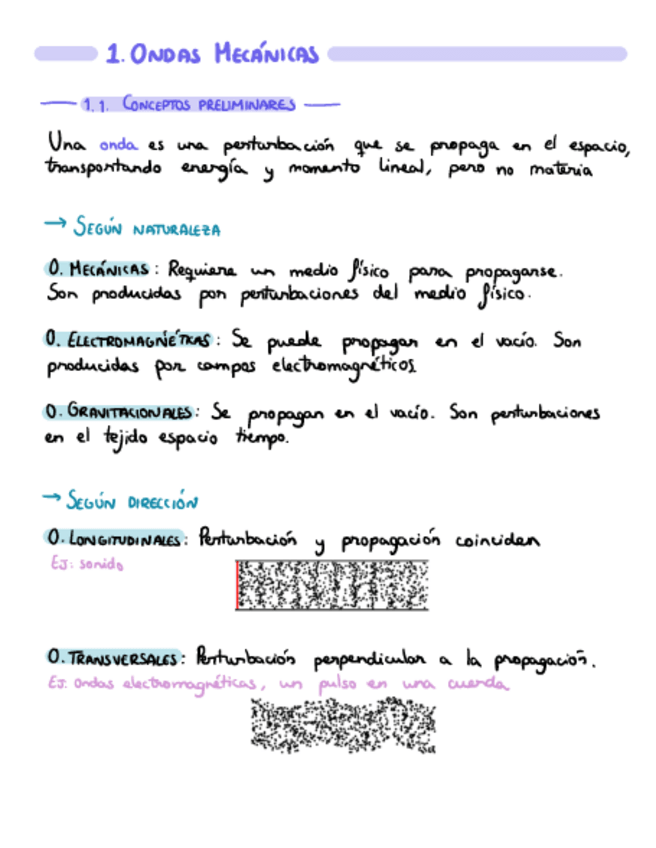 1. ONDAS MECÁNICAS
1.1. CONCEPTOS PRELIMINARES
Una onda es una perturbación que se propaga en el espacio,
transportando energía y momento lineal, pero no materia
→ SEGÚN NATURALEZA
O. MECÁNICAS: Requiere un medio físico para propagarse.
Son producidas por perturbaciones del medio físico.
O. ELECTROMAGNÉTICAS: Se puede propagar en el vacío. Son
producidas por campos electromagnéticos
O. GRAVITACIONALES: Se propagan en el vacío. Son perturbaciones
en el tejido espacio tiempo.
→ SEGÚN DIRECCIÓN
O. LONGITUDINALES: Perturbación y propagación coinciden
EJ: sonido
O. TRANSVERSALES: Perturbación perpendicular a la propagación.
EJ: ondas electromagnéticas, un pulso en una cuerda